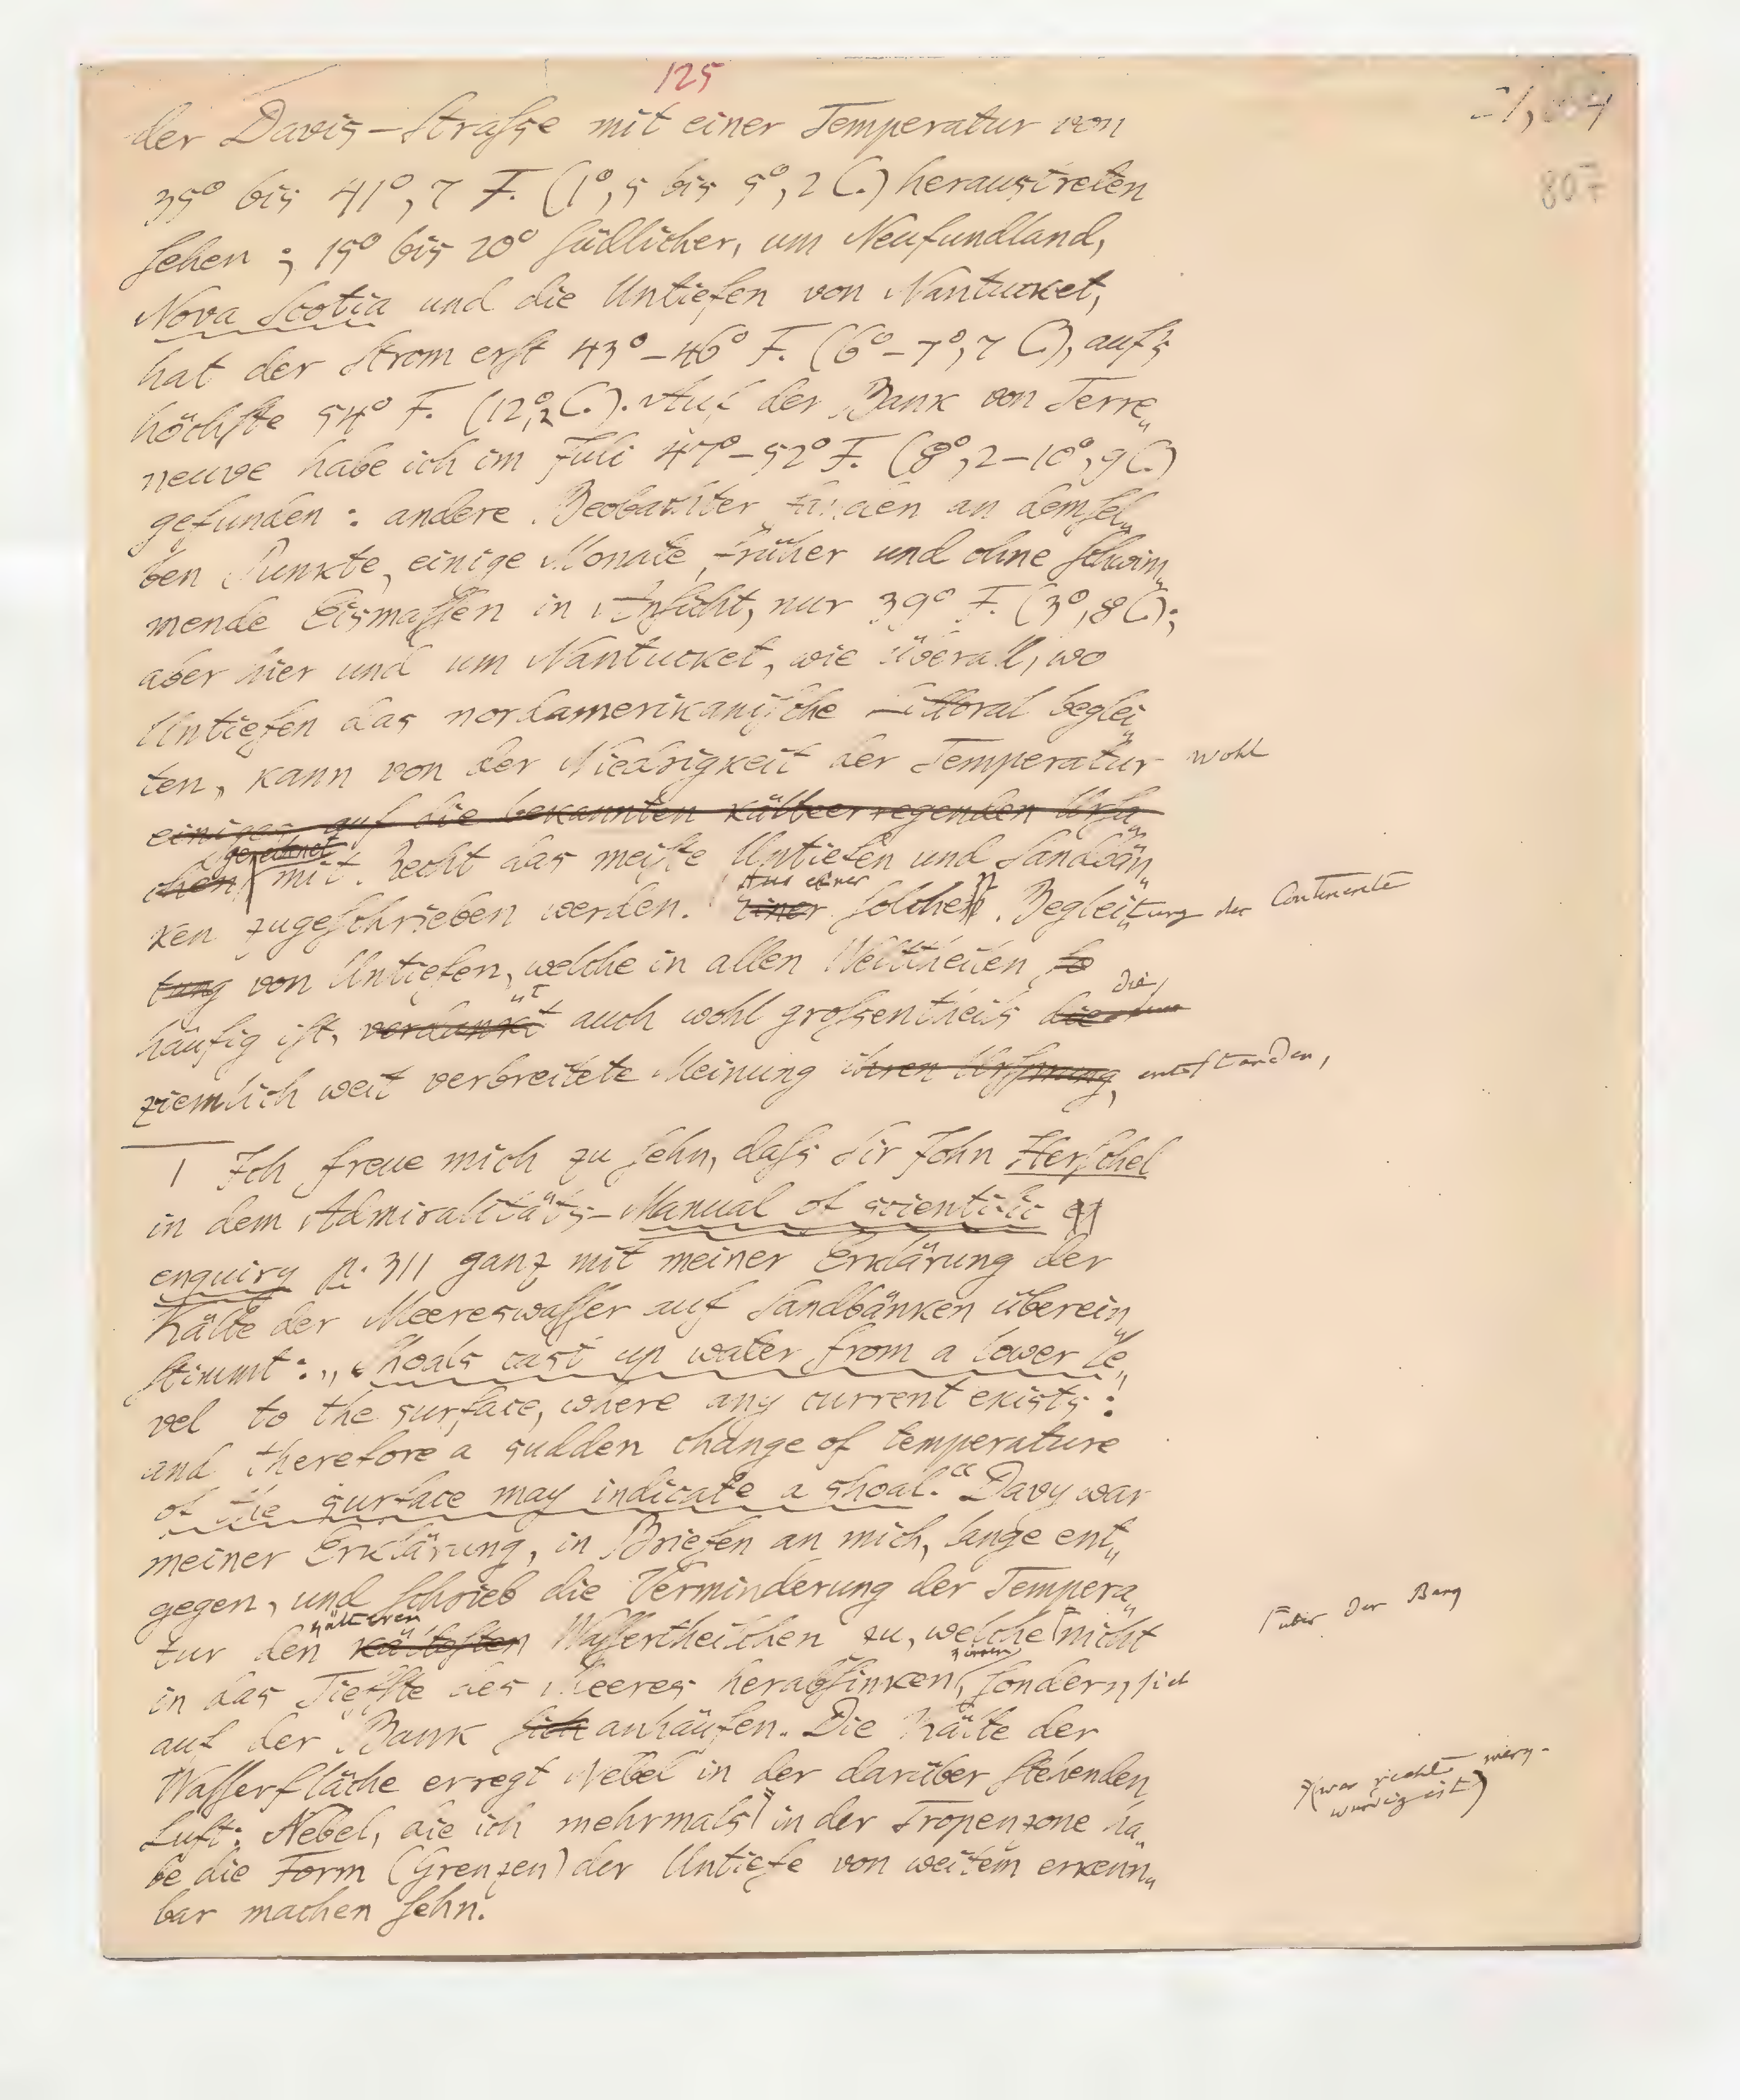 125
807
der Davis-Straſse mit einer Temperatur von
35° bis 41°,7 F. (1°,5 bis 5°,2 C.) heraustreten
ſehen; 15° bis 20° ſüdlicher, um Neufundland,
Nova Scotia und die Untiefen von Nantucket,
hat der Strom erſt 43°–46° F. (6°–7°,7 C.), auf's
höchſte 54° F. (12°,2 C.). Auf der Bank von Terre„
neuve habe ich im Juli 47°–52° F. (8°,2–10°,9 C.)
gefunden: andere Beobachter fanden an demſel„
ben Punkte, einige Monate früher und ohne ſchwim„
mende Eismaſſen in Anſicht, nur 39° F. (3°,8 C.);
aber hier und um Nantucket, wie überall, wo
Untiefen das nordamerikaniſche Littoral beglei„
ten, kann von der Niedrigkeit der Temperatur wohl
einiges auf die bekannten kälteerregenden Urſa„
chen gerechnet mit Recht das meiſte Untiefen und Sandbän„
ken zugeſchrieben werden. Einer Aus einer ſolchen Beglei„tung der Continente
tung von Untiefen, welche in allen Welttheilen ſo
häufig iſt, verdankt iſt auch wohl groſsentheils die
ziemlich weit verbreitete Meinung ihren Urſprung, entſtanden,
1 Ich freue mich zu ſehn, daſs Sir John Herſchel
in dem Admiralitäts-Manual of scientific
enquiry p. 311 ganz mit meiner Erklärung der
Kälte der Meereswaſſer auf Sandbänken überein„
ſtimmt: „Shoals cast up water from a lower le„
vel to the surface, where any current exists:
and therefore a sudden change of temperature
of the surface may indicate a shoal.“ Davy war
meiner Erklärung, in Briefen an mich, lange ent„
gegen, und ſchrieb die Verminderung der Tempera„
tur den kälteſten kälteren Waſſertheilchen zu, welche nicht über der Bang
in das Tiefſte des Meeres herabſinken, ſondern ſich
auf der Bank ſich anhäufen. Die Kälte der
Waſſerfläche erregt Nebel in der darüber ſtehenden
Luft: Nebel, die ich mehrmals in der Tropenzone ha„
be die Form (Grenzen) der Untiefe von weitem erkenn„
bar machen ſehn.